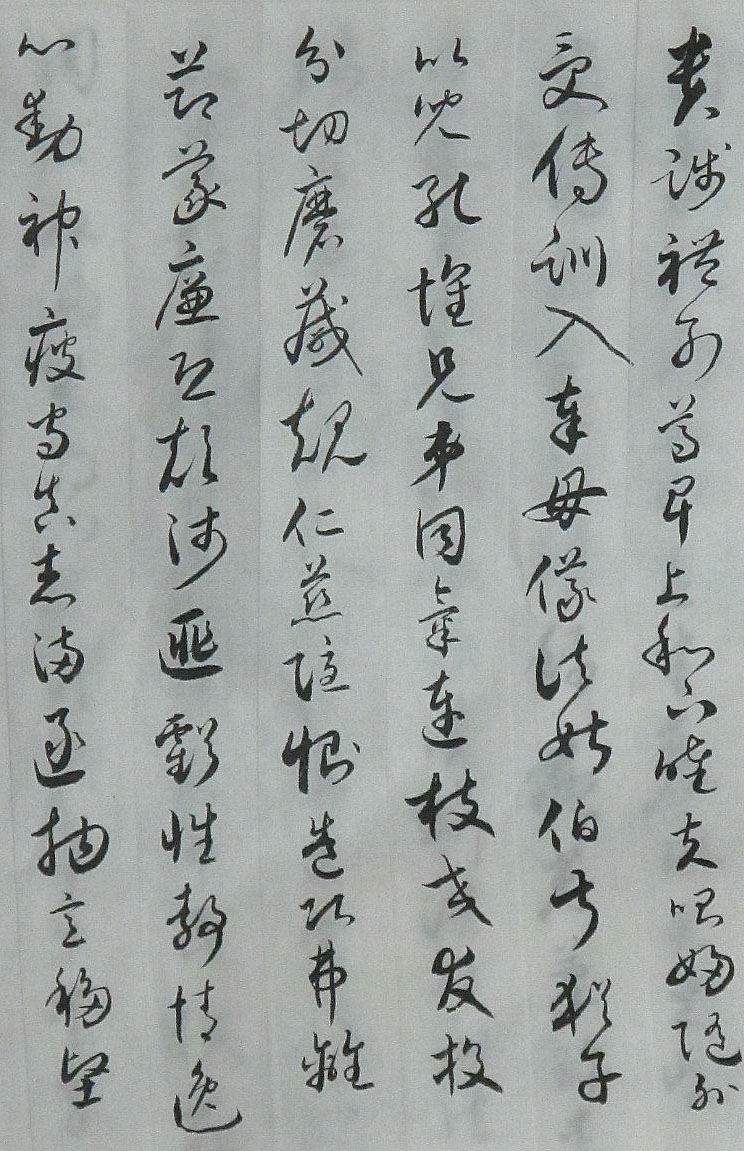 貴賤禮別尊卑上和下睦夫唱婦隨外
受傅訓入奉母儀諸姑伯叔猶子
比兒孔懷兄弟同氣連枝交友投
分切磨箴規仁慈隱惻造次弗離
節義廉退顛沛匪虧性靜情逸
心動神疲守真志滿逐物意移堅